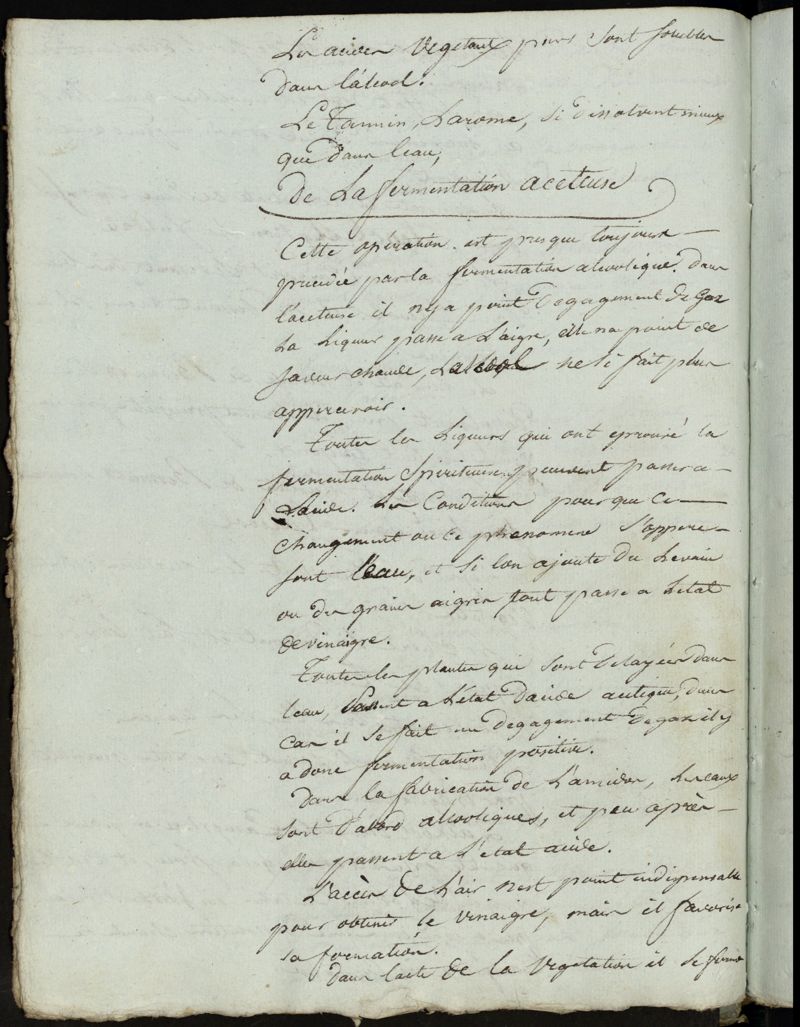 Les acides Vegetaux purs sont solubles
dans l'álcool.
Le Tannin, Larome, si dissolvent mieux
que dans leau,
De La fermentation aceteuse
Cette opération est presque toujours
precedée par la fermentation alcoolique. dans
l'aceteuse il ny a point Degagement de Gaz
La Liqueur passe a L'aigre, elle na point de
saveur chaude, Lalcool ne si fait plus
appercevoir.
Toutes les Liqueurs qui ont eprouvé la
fermentation Spiritueuse peuvent passer a
Lacide. Les Conditions pour que ce
changement ou ce phenomene s'oppere
sont l'eau, et si lon ajoute du Levain
ou des grains aigris tout passe a letat
de vinaigre.
Toutes les plantes qui sont Delayées dans
leau, passent a L'état Dacide acetique, dans
Cas il se fait un Degagement De gaz il y
a donc fermentation positive.
Dans la fabrication de L'amidon, les eaux
sont Dabord alcooliques, et peu après
elles passent a l'etat acide.
L'accès De L'air nest point indispensable
pour obtenir le vinaigre, mais il favorise
sa formation.
Dans lacte de la Vegetation il se forme